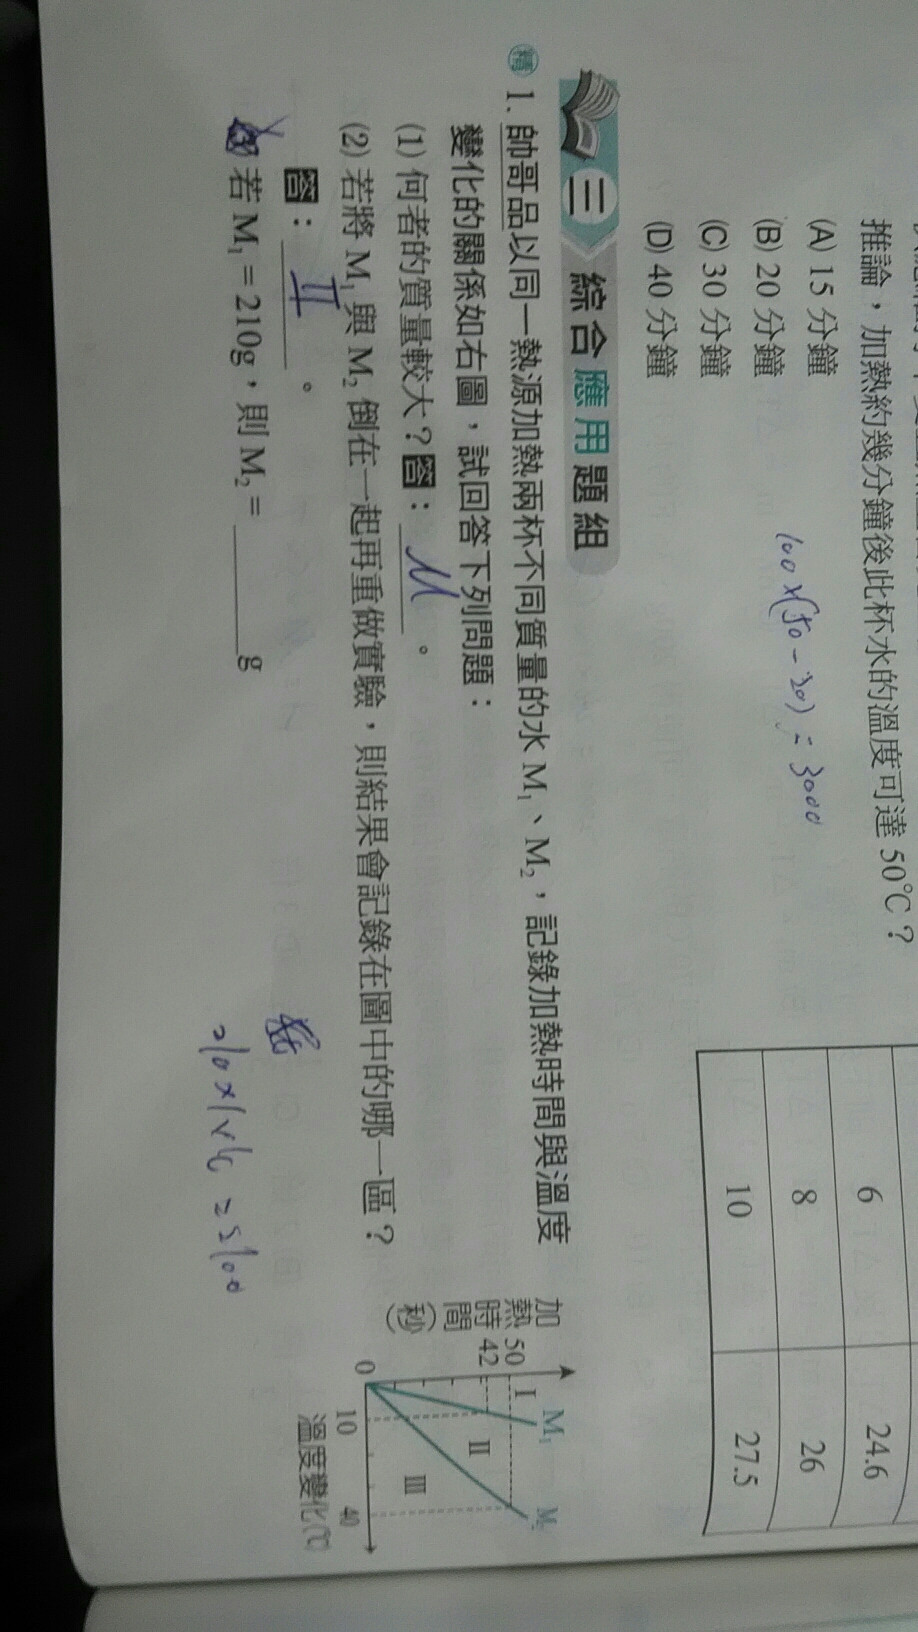 推論，加熱約幾分鐘後此杯水的溫度可達 50℃？
(A) 15 分鐘
(B) 20 分鐘
(C) 30 分鐘
(D) 40 分鐘
100×(50－20)＝3000
6 24.6
8 26
10 27.5
三 綜合應用題組
精 1. 帥哥品以同一熱源加熱兩杯不同質量的水 M₁、M₂，記錄加熱時間與溫度
變化的關係如右圖，試回答下列問題：
(1) 何者的質量較大？答：M 。
(2) 若將 M₁ 與 M₂ 倒在一起再重做實驗，則結果會記錄在圖中的哪一區？
答：II 。
(3) 若 M₁＝210g，則 M₂＝ g
210×1×10＝2100
加熱時間(秒)
50
42
0
10
40
溫度變化(℃)
I
II
III
M₁
M₂